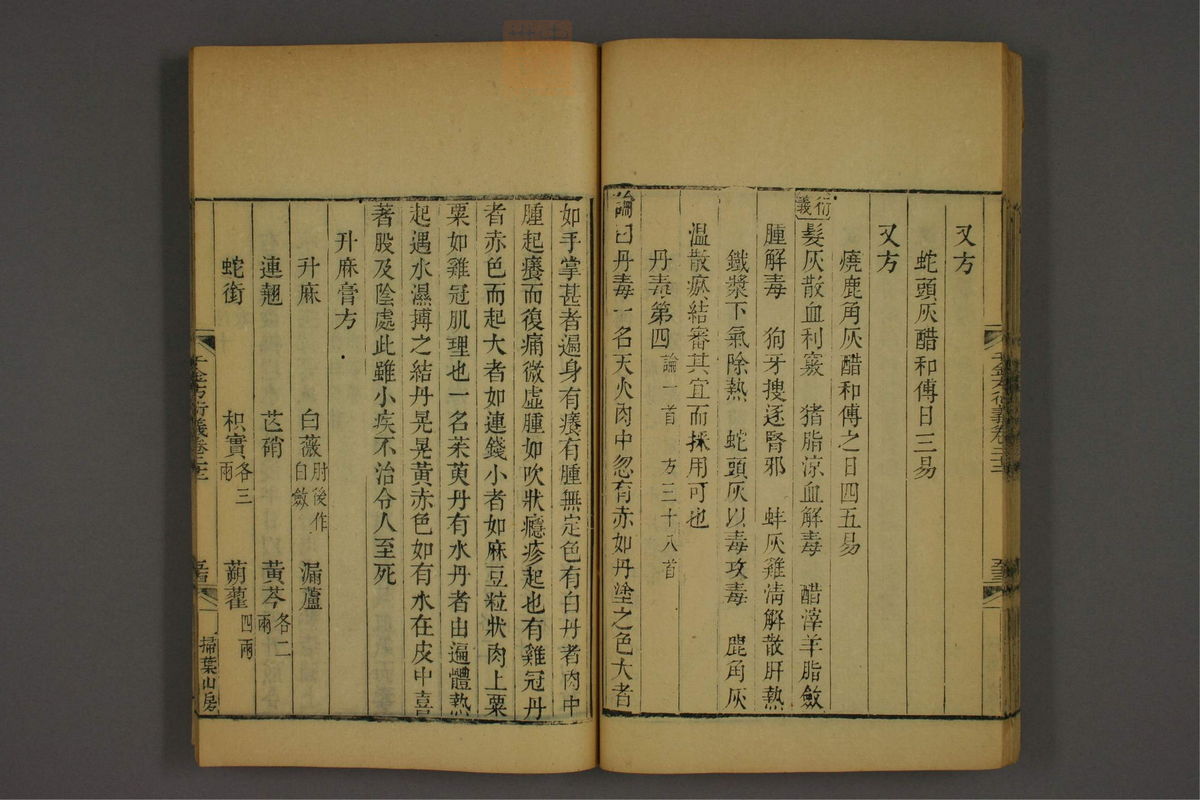 又方
蛇頭灰醋和傅日三易
又方
燒鹿角灰醋和傅之日四五易
衍義
髮灰散血利竅 猪脂涼血解毒 醋滓羊脂斂
腫解毒 狗牙搜逐腎邪 蚌灰雞清解散肝熱
鐵漿下氣除熱 蛇頭灰以毒攻毒 鹿角灰
溫散瘀結審其宜而採用可也
丹毒第四 論一首 方三十八首
論曰丹毒一名天火肉中忽有赤如丹塗之色大者
如手掌甚者遍身有癢有腫無定色有白丹者肉中
腫起癢而復痛微虛腫如吹狀癮疹起也有雞冠丹
者赤色而起大者如連錢小者如麻豆粒狀肉上粟
粟如雞冠肌理也一名茱萸丹有水丹者由遍體熱
起遇水濕搏之結丹晃晃黃赤色如有水在皮中喜
著股及陰處此雖小疾不治令人至死
升麻膏方
升麻 白薇肘後作白斂 漏蘆
連翹 芒硝 黃芩各二兩
蛇銜 枳實各三兩 蒴藋四兩
千金方衍義卷二十二
掃葉山房